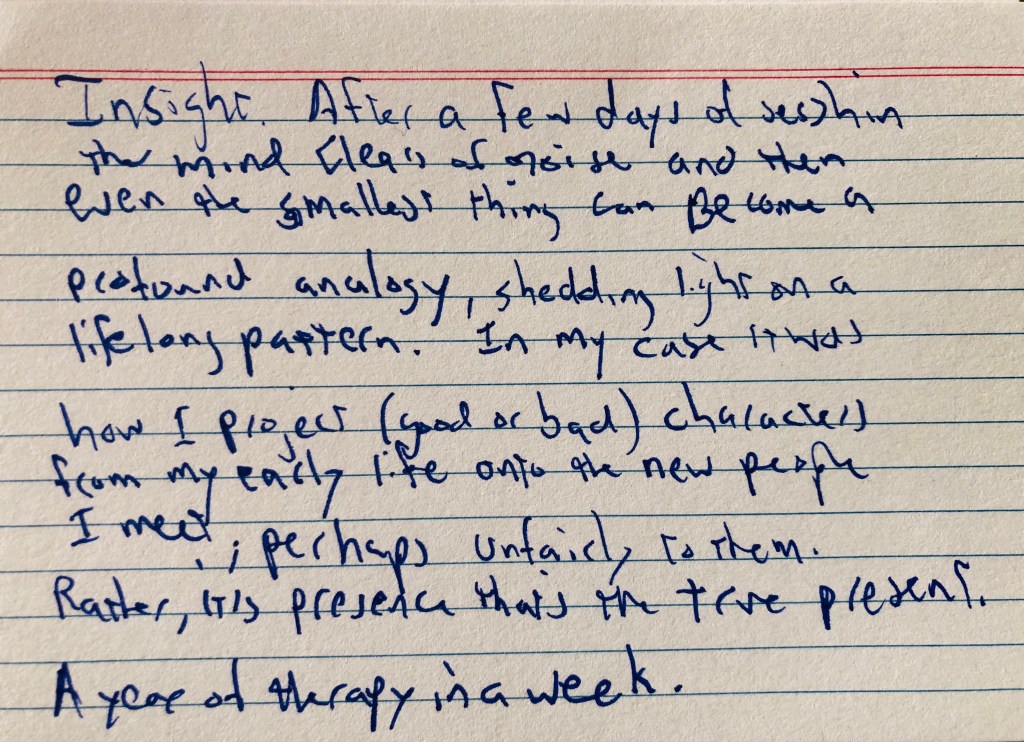 Insight. After a few days of sesshin
the mind clears of noise and then
even the smallest thing can Become a
profound analogy, shedding light on a
lifelong pattern. In my case it was
how I project (good or bad) characters
from my early life onto the new people
I meet, ; perhaps unfairly to them.
Rather, it is presence that's the true present.
A year of therapy in a week.